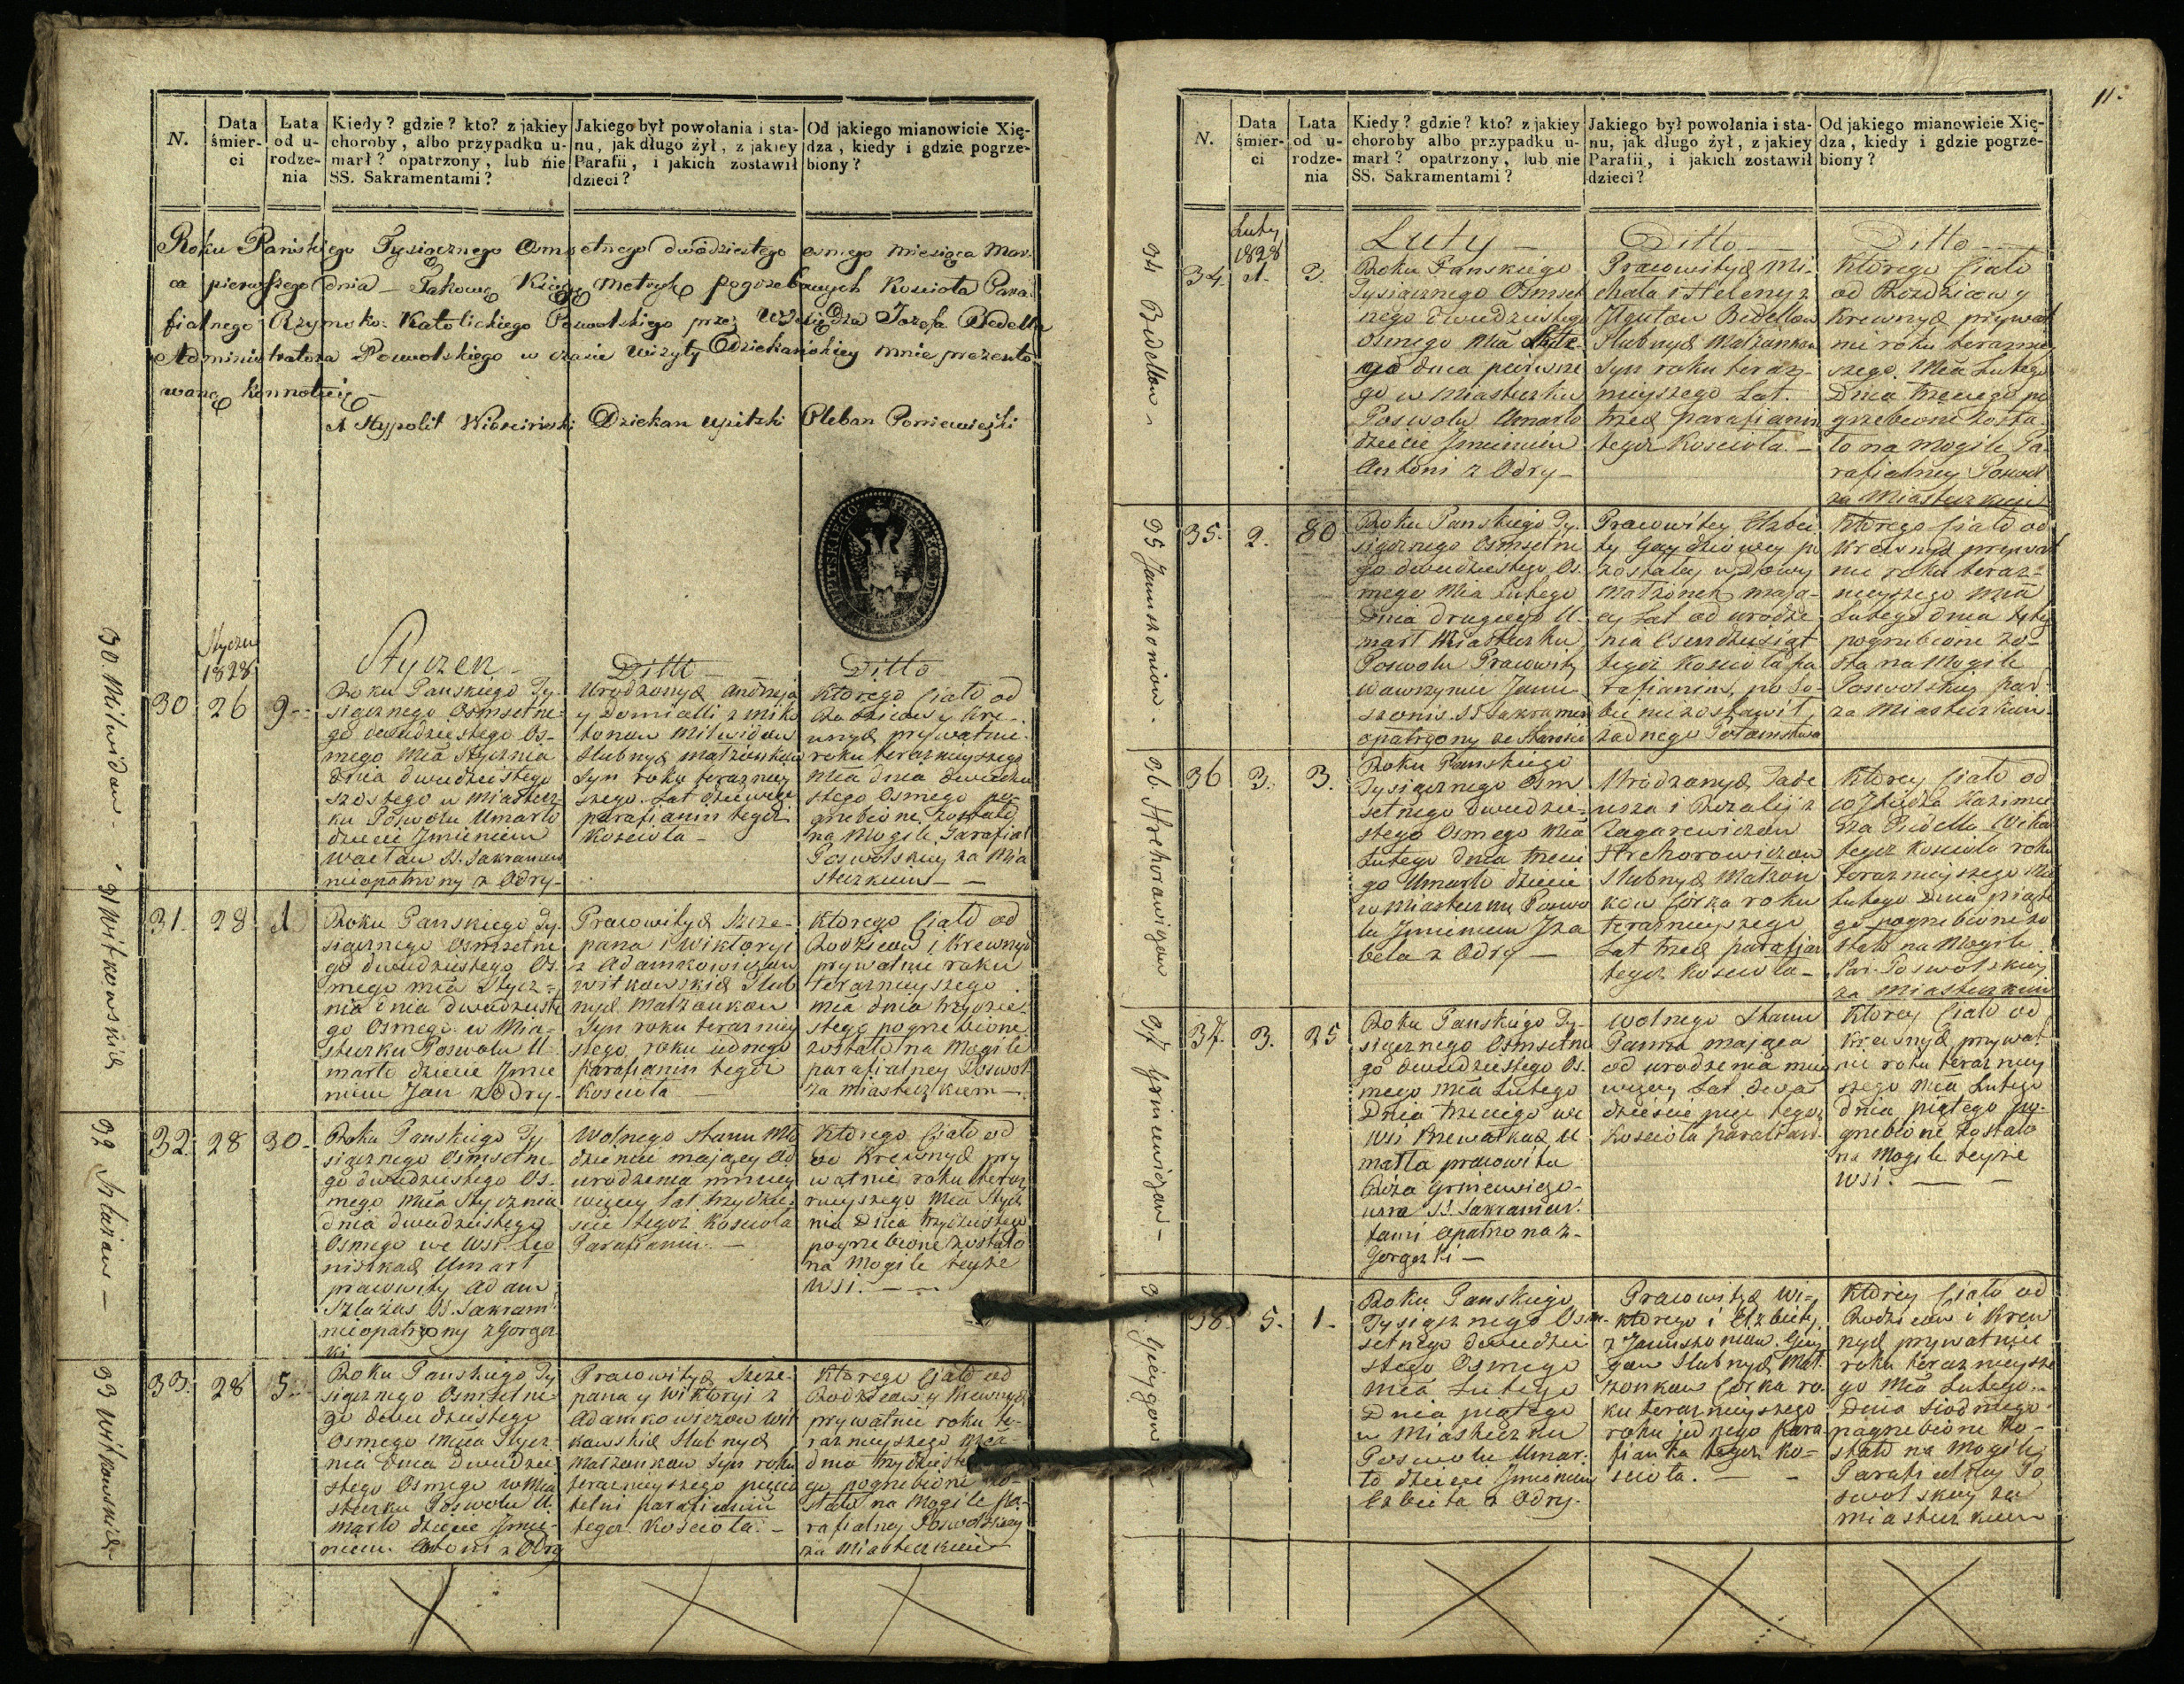 N.
Data śmier- ci
Lata od u- rodze- nia
Kiedy? gdzie? kto? z jakiey
choroby, albo przypadku u-
marł? opatrzony, lub nie
SS. Sakramentami?
Jakiego był powołania i sta-
nu, jak długo żył, z jakiey
Parafii, i jakich zostawił
dzieci?
Od jakiego mianowicie Xię-
dza, kiedy i gdzie pogrze-
biony?
Roku Pańskiego Tysiącznego Osmsetnego dwódziestego osmego miesiąca Mar-
ca pierwszego dnia – Takową Xięgę metryk pogrzebowych Kościoła Para-
fialnego Rzymsko-Katolickiego Poswolskiego przez Xiędza Jozefa Bedella
Administratora Poswolskiego w czasie wizyty Dziekańskiey mnie prezento-
waną konnotuię –
X Hyppolit Dziekan Upitski Pleban Poniewiezki
30. Milwidow
Styczeń
1828
30
26
9
Styczen –
Roku Panskiego Ty-
siącznego Osmsetne-
go dwudziestego Os-
mego Mca Stycznia
dnia dwudziestego
szostego w Miastecz-
ku Poswolu Umarło
dziecie Jmieniem
Wacław SS. Sakramen
nieopatrzony z Odry –
Ditto
Urodzonych Andrzeja
y Domicelli z Miko
łonow Milwidow
Slubnych małżonkow
Syn roku terazniey
szego. Lat dziewięć
parafianin tegoż
Kościoła –
Ditto
Ktorego Ciało od
Rodzicow y Kre-
wnych prywatnie
roku teraznieyszego
Mca dnia dwudzie
stego Osmego po-
grzebione zostało
na Mogile Parafial
Poswolskiey za Mia
steczkiem –
31 Witkowskich
31.
28
1
Roku Panskiego Ty-
siącznego Osmsetne
go dwudziestego Os-
mego Mca Stycz-
nia dnia dwudzieste
go Osmego w Mia-
steczku Poswolu U
marło dziecie Jmie
niem Jan z Odry –
Pracowitych Szcze-
pana i Wiktoryi
z Adamkowiczow
Witkowskich Slub
nych Małżonkow
Syn roku teraz niey
szego, roku iednego
Parafianin tegoż
Kościoła –
Ktorego Ciało od
Rodzicow i Krewnych
prywatnie roku
teraznieyszego
Mca dnia trzydzie-
stego pogrzebione
zostało na Mogile
parafialney Poswol
za miasteczkiem –
32 Szlażas –
32.
28
30
Roku Panskiego Ty
siącznego Osmsetne-
go dwudziestego Os-
mego Mca Stycznia
dnia dwudziestego
Osmego we Wsi Leo
niszkach Umarł
pracowity Adam
Szlażas SS. Sakram
nieopatrzony z Gorącz
ki
Wolnego stanu Mło
dzieniec maiący od
urodzenia mniey
więcey lat trzydzie-
scie tegoż Kościoła
Parafianin –
Ktorego Ciało od
Krewnych pry
watnie roku teraz
nieyszego Mca Stycz
nia dnia trzydziestego
pogrzebione zostało
na Mogile teyże
Wsi. –
33 Witkowskich
33.
28
5
Roku Panskiego Ty
siącznego Osmsetne
go dwudziestego
Osmego Mca Stycz
nia dnia dwudzie
stego Osmego w Mia
steczku Poswolu U
marło dziecie Jmie-
niem Antoni z Odry
Pracowitych Szcze-
pana y Wiktoryi z
Adamkowiczow Wit
kowskich Slubnych
Małżonkow Syn roku
teraznieyszego pięcio
letni parafianin
tegoż Kościoła –
Ktorego Ciało od
Rodzicow y Krewnych
prywatnie roku te-
raznieyszego Mca
dnia trzydzieste
go pogrzebione zo-
stało na Mogile Pa-
rafialney Poswolskiey
za Miasteczkiem
11.
N.
Data śmier- ci
Lata od u- rodze- nia
Kiedy? gdzie? kto? z jakiey
choroby albo przypadku u-
marł? opatrzony, lub nie
SS. Sakramentami?
Jakiego był powołania i sta-
nu, jak długo żył, z jakiey
Parafii, i jakich zostawił
dzieci?
Od jakiego mianowicie Xię-
dza, kiedy i gdzie pogrze-
biony?
34 Bedellow –
Luty
1828
34.
1.
3.
Luty –
Roku Panskiego
Tysiącznego Osmset
nego dwudziestego
osmego Mca Lute
go dnia pierwsze
go w Miasteczku
Poswolu Umarło
dziecie Jmieniem
Antoni z Odry –
Ditto –
Pracowitych Mi-
chała i Heleny z
Bedellow
Slubnych Małżonkow
Syn roku teraz-
nieyszego Lat.
trzech parafianin
tegoż Kościoła. –
Ditto –
Ktorego Ciało
od Rodzicow y
Krewnych prywat
nie roku teraznie
szego. Mca Lutego
Dnia trzeciego po
grzebione zosta-
ło na Mogile Pa-
rafialney Poswol
za Miasteczkiem
35 Januszoniow –
35.
2.
80
Roku Panskiego Ty-
siącznego Osmsetne
go dwudziestego Os-
mego Mca Lutego
Dnia drugiego U-
marł w Miasteczku
Poswolu Pracowity
Wawrzyniec Janu
szonis. SS. Sakramen
opatrzony ze Starości
Pracowitey Elzbie
ty po
zostałey wdowy
Małżonek maia-
cy Lat od urodze
nia Osmdziesiąt
tegoż Kościoła pa
rafianin, po so-
bie niezostawił
żadnego Potomstwa
Ktorego Ciało od
Krewnych prywat
nie roku teraz-
nieyszego Mca
Lutego dnia
pogrzebione zo-
sta na Mogile
Poswolskiey par-
za Miasteczkiem
36. Hrehorowiczow
36
3.
3.
Roku Panskiego
Tysiącznego Osm
setnego dwudzie-
stego Osmego Mca
Lutego dnia trzecie
go Umarło dziecie
w Miasteczku Poswo
lu Jmieniem Iza
bela z Odry –
Urodzonych Tade
usza i Rozalij z
Zagarewiczow
Hrehorowiczow
Slubnych Małżon
kow Corka roku
teraznieyszego
Lat trzech parafian
tegoż Kościoła –
Ktorey Ciało od
Kazimie
rza Bedella
tegoż Kościoła roku
teraznieyszego Mca
Lutego Dnia piąte
go pogrzebione zo
stało na Mogile
Par. Poswolskiey
za Miasteczkiem
37 Gryniewiczow –
37.
3.
25
Roku Panskiego Ty-
siącznego Osmsetne
go dwudziestego Os-
mego Mca Lutego
Dnia trzeciego we
Wsi U
marła pracowita
Roża
SS. Sakramen
tami opatrzona z-
Gorączki –
Wolnego Stanu
Panna maiąca
od urodzenia mniey
więcey Lat dwa
dzieście pięć tegoż
Kościoła parafian.
Ktorey Ciało od
Krewnych prywat-
nie roku teraz niey
szego Mca Lutego
dnia piątego po-
grzebione zostało
na Mogile teyże
Wsi. –
38.
5.
1.
Roku Panskiego
Tysiącznego Osm-
setnego dwudzie
stego Osmego
Mca Lutego
Dnia piątego
w Miasteczku
Poswolu Umar-
ło dziecie Jmieniem
Elzbieta z Odry.
Pracowitych Wi-
ktorego i Elzbiety
z Januszoniow
Slubnych Mał-
żonkow Corka ro
ku teraznieyszego
roku jednego Para
fianka tegoż Ko-
ścioła. –
Ktorey Ciało od
Rodzicow i Krew
nych prywatnie
roku teraznieysze
go Mca Lutego
Dnia siodmego
pogrzebione zo-
stało na Mogile
Parafialney Po
swolskiey za
miasteczkiem